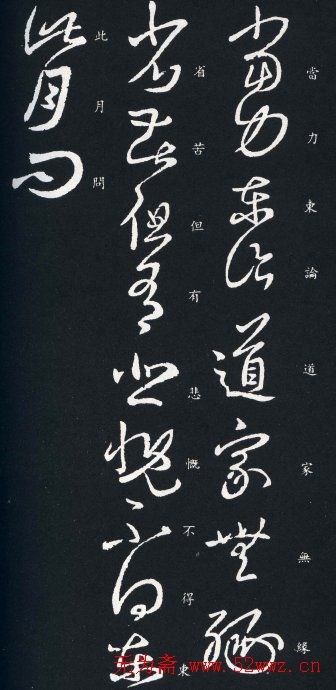 當力東論道家無緣
省苦但有悲慨不得東
此月問
无为斋-www.52wwz.cn